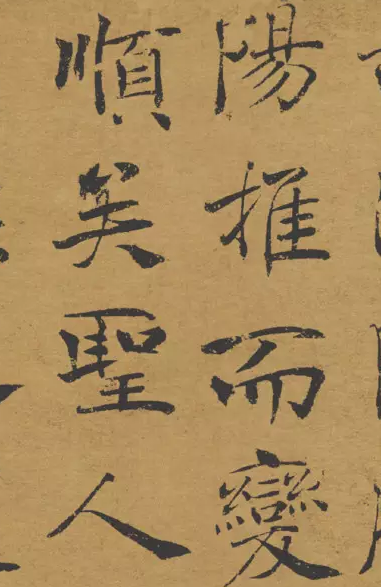 陽推而變
順矣聖人